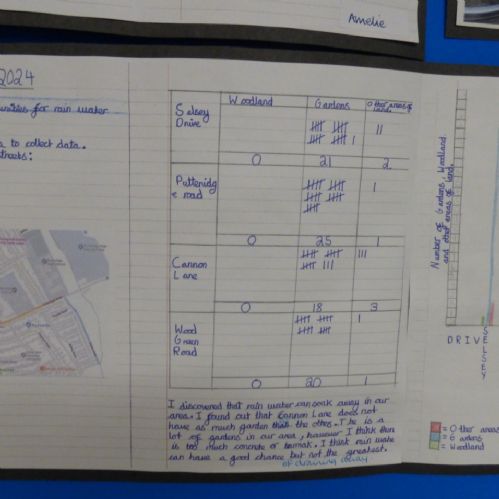 Amelie
2024
for rain water
to collect data.
Woodland Gardens Other areas of
land.
Selsey
Drive
0 21 2
Putteridg
e road
0 25 1
Cannon
Lane
0 18 3
Wood
Green
Road
0 20 1
I discovered that rain water can soak away in our
area. I found out that Cannon Lane does not
have as much garden than the othes. The is a
lot of gardens in our area, however I think there
is too much concrete or tarmak. I think rain wate
can have a good chance but not the greatest.
of draining away
Number of Gardens, Woodland
and other areas of land.
DRIVE
SELSEY
= Other areas
= Gardens
= Woodland